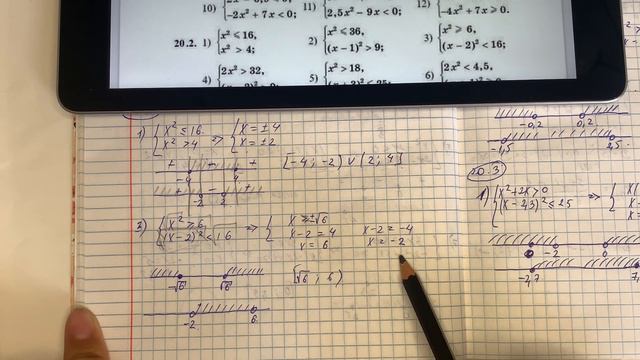 10) { −2x² + 7x < 0; 11) { 2,5x² − 9x < 0; 12) { −4x² + 7x ⩾ 0.
20.2. 1) { x² ⩽ 16, x² > 4; 2) { x² ⩽ 36, (x − 1)² > 9; 3) { x² ⩾ 6, (x − 2)² < 16;
4) { 2x² > 32, 5) { x² > 18, 6) { 2x² < 4,5,
1) { x² ≤ 16 x² > 4 => { x = ±4 x = ±2
+ − +
−4 4 [−4; −2) ∪ (2; 4]
−2 2
3) { x² ≥ 6 (x−2)² < 16 => { x ≥ ±√6
x−2 = 4 x−2 = −4
x = 6 x = −2
−√6 √6 [√6; 6)
−2 6
−0,2 0,2
−1,5 2,5
20.3.
1) { x² + 2x > 0 (x−2,3)² ≤ 25 => {
−2 0
−2,7